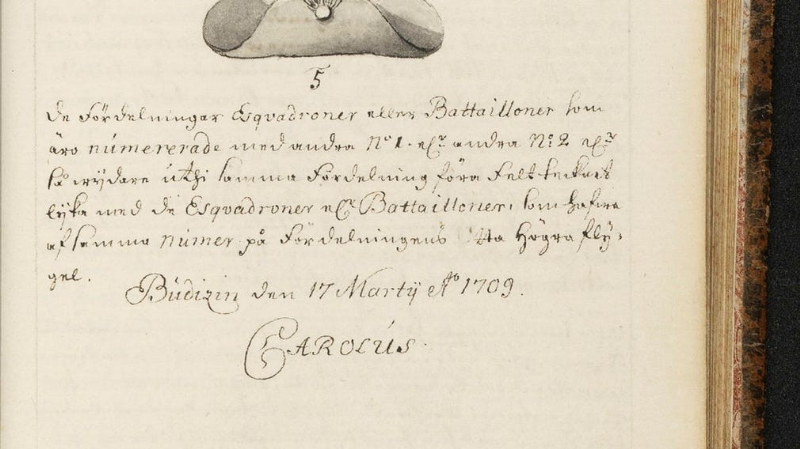 5
De Fördelningar Esqvadroner eller Battailloner som
äro númererade med andra No 1. etc andra No: 2 etc
så wydare úthi samma Fördelning föra Felttecknet
lyka med de Esqvadroner etc Battailloner, som hafwa
af samma númer på Fördelningens Högra fly-
gel.
Búdizin den 17 Martÿ Ao 1709.
CAROLÚS.